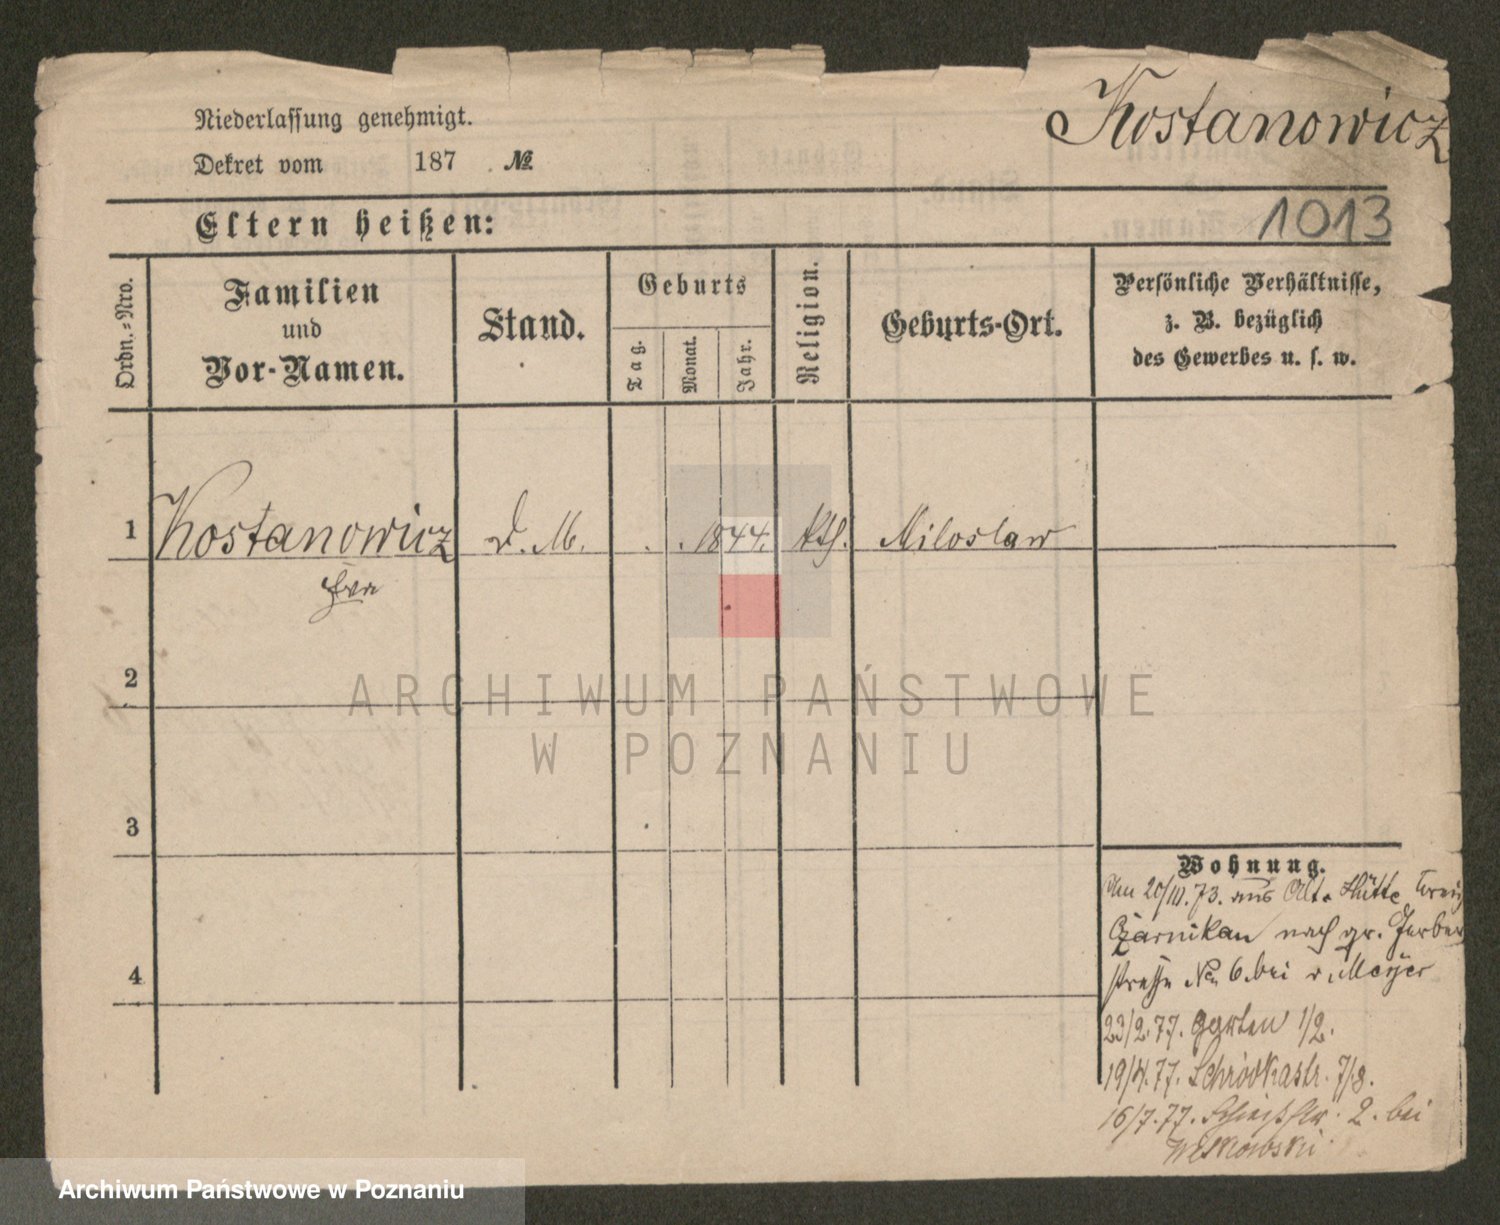 Kostanowicz
Niederlassung genehmigt.
Dekret vom 187 . №
Eltern heißen:
1013
Ordn.=Nro.
Familien
und
Vor-Namen.
Stand.
Geburts
Tag.
Monat.
Jahr.
Religion.
Geburts-Ort.
Persönliche Verhältnisse,
z. B. bezüglich
des Gewerbes u. s. w.
1 Kostanowicz D. M. . . 1844. kth. Miloslaw
Eva
2
ARCHIWUM PAŃSTWOWE
W POZNANIU
3
4
Wohnung.
Am 20/10.73. aus Alte Hütte Kreis
Czarnikau nach gr. Gerber
straße No 6. bei v. Meyer
23/2.77. Garten 1/2.
19/4.77. Schrodkastr. 7/8.
16/7.77. Schießstr. 2. bei
Witkowski
Archiwum Państwowe w Poznaniu